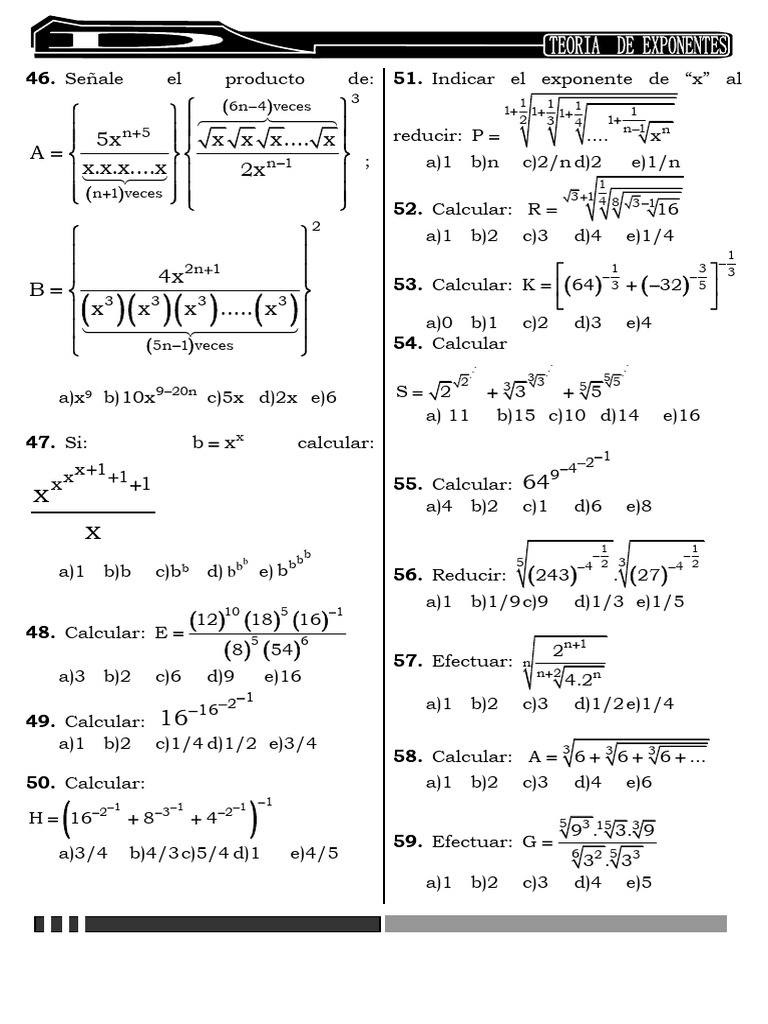 TEORIA DE EXPONENTES
46. Señale el producto de:
A = {5xⁿ⁺⁵ / x.x.x....x (n+1)veces} {√x √x √x....√x (6n−4)veces / 2xⁿ⁻¹}³ ;
B = {4x²ⁿ⁺¹ / (x³)(x³)(x³).....(x³) (5n−1)veces}²
a)x⁹ b)10x⁹⁻²⁰ⁿ c)5x d)2x e)6
47. Si: b = xˣ calcular:
x^(x^(x^(x^(x+1)+1)+1)) / x
a)1 b)b c)bᵇ d) b^(b^b) e) b^(b^(b^b))
48. Calcular: E = (12)¹⁰ (18)⁵ (16)⁻¹ / (8)⁵ (54)⁶
a)3 b)2 c)6 d)9 e)16
49. Calcular: 16^(−16^(−2^(−1)))
a)1 b)2 c)1/4 d)1/2 e)3/4
50. Calcular:
H = (16^(−2^(−1)) + 8^(−3^(−1)) + 4^(−2^(−1)))^(−1)
a)3/4 b)4/3 c)5/4 d)1 e)4/5
51. Indicar el exponente de “x” al
reducir: P = ^(1+1/2)√(^(1+1/3)√(^(1+1/4)√(.... ^(1+1/(n−1))√(xⁿ))))
a)1 b)n c)2/n d)2 e)1/n
52. Calcular: R = ^(√3+1)√(^(1/4)√(⁸√(^(√3−1)√16)))
a)1 b)2 c)3 d)4 e)1/4
53. Calcular: K = [(64)^(−1/3) + (−32)^(−3/5)]^(−1/3)
a)0 b)1 c)2 d)3 e)4
54. Calcular
S = √2^(√2^⋰) + ³√3^(³√3^⋰) + ⁵√5^(⁵√5^⋰)
a) 11 b)15 c)10 d)14 e)16
55. Calcular: 64^(9^(−4^(−2^(−1))))
a)4 b)2 c)1 d)6 e)8
56. Reducir: ⁵√((243)^(−4^(−1/2))) . ³√((27)^(−4^(−1/2)))
a)1 b)1/9 c)9 d)1/3 e)1/5
57. Efectuar: ⁿ√(2ⁿ⁺¹ / ⁿ⁺²√(4.2ⁿ))
a)1 b)2 c)3 d)1/2 e)1/4
58. Calcular: A = ³√(6 + ³√(6 + ³√(6 + ...)))
a)1 b)2 c)3 d)4 e)6
59. Efectuar: G = ⁵√9³ . ¹⁵√3 . ³√9 / ⁶√3² . ⁵√3³
a)1 b)2 c)3 d)4 e)5